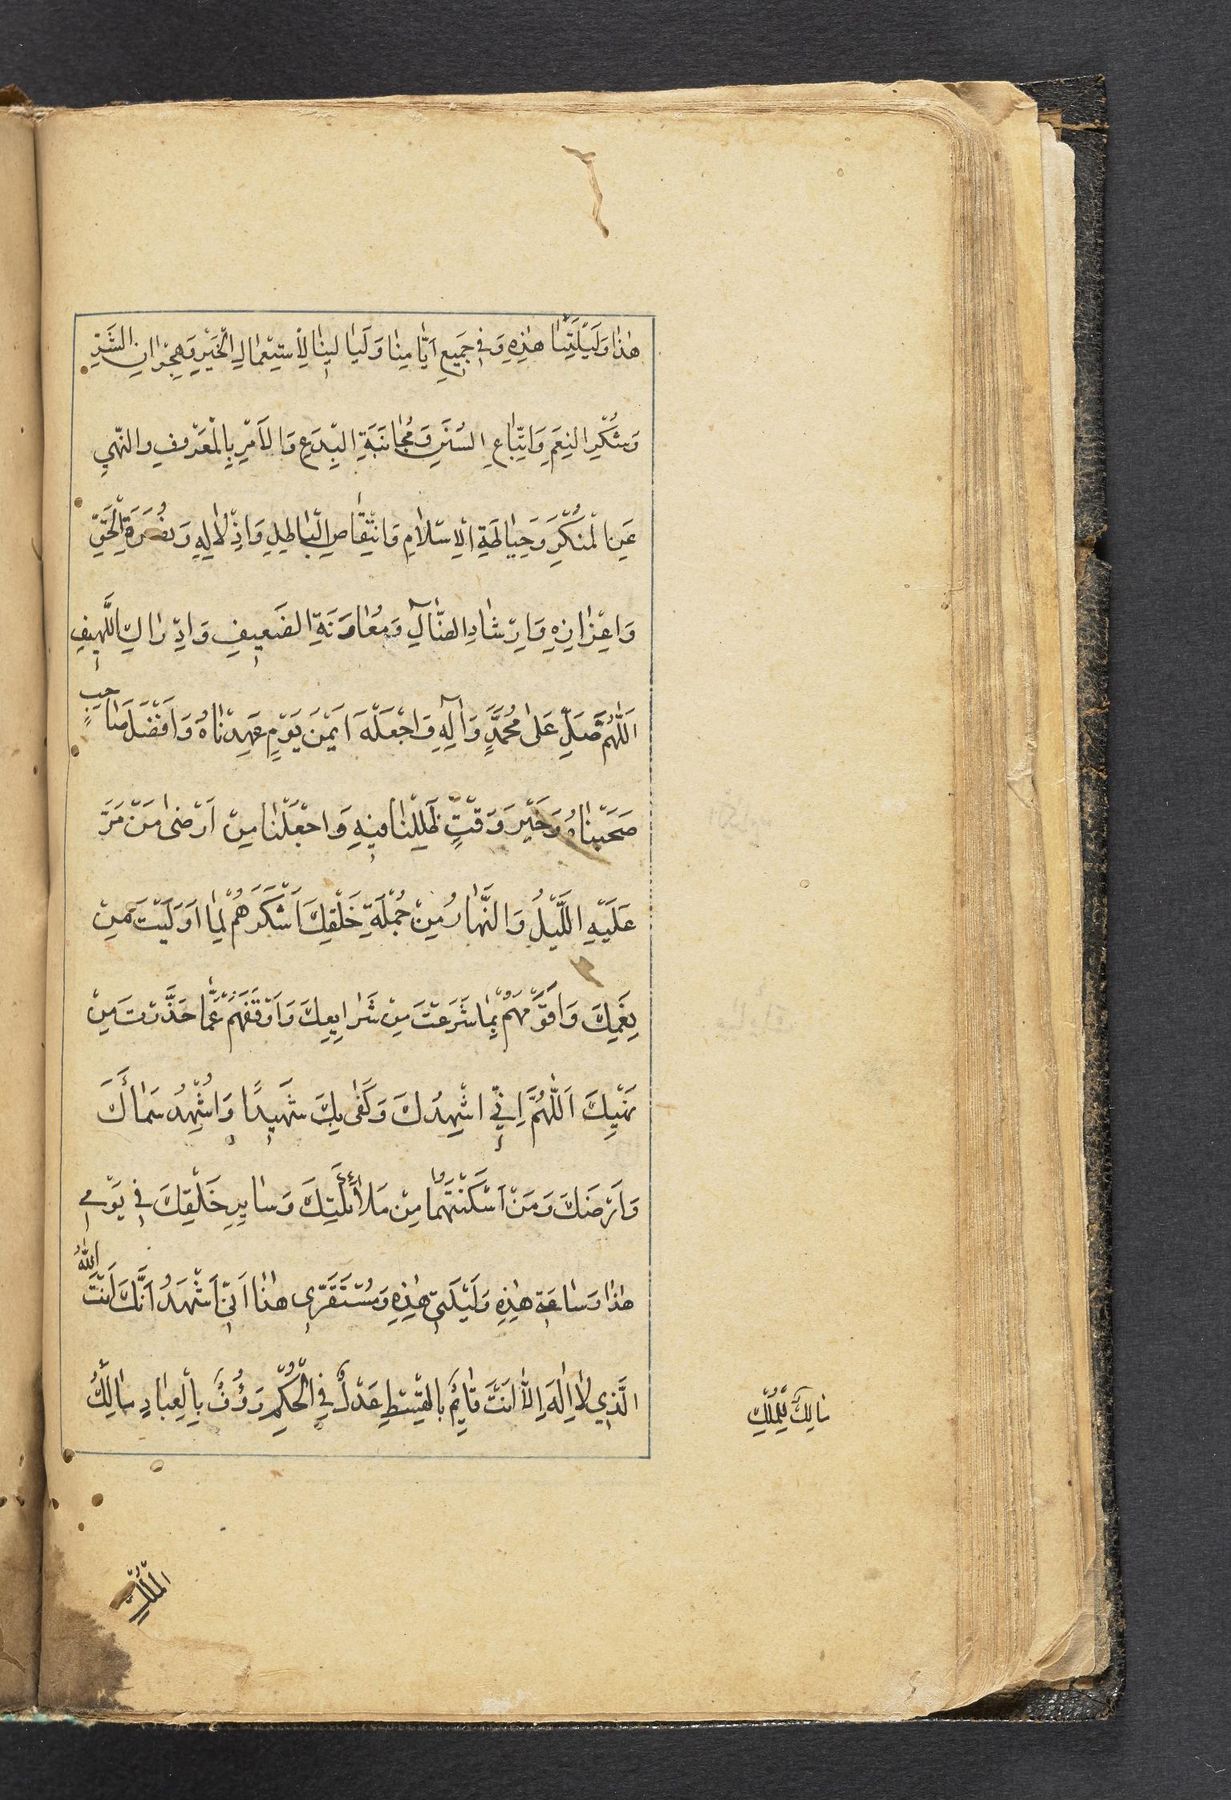 هٰذا وَلَيْلَتِنٰا هٰذِهِ وَفِي جَمِيعِ اَيّٰامِنٰا وَلَيٰالِينٰا لِاسْتِعْمٰالِ الْخَيْرِ وَهِجْرٰانِ الشَّرِّ
وَشُكْرِ النِعَمِ وَاتِّبٰاعِ السُنَنِ وَمُجٰانَبَةِ الْبِدَعِ وَالاَمْرِ بِالْمَعْرُوفِ والنَّهيِ
عَنِ الْمُنْكَرِ وَحِيٰاطَةِ الْاِسْلٰامِ وَانْتِقٰاصِ الْبٰاطِلِ وَاِذْلٰالِهِ وَنُصْرَةِ الْحَقِّ
وَاِعْزٰازِهِ وَاِرْشٰادِ الضّٰآلِّ وَمُعٰاوَنَةِ الضَعِيفِ وَاِدْرٰاكِ اللَّهِيفِ
اَللّٰهُمَّ صَلِّ عَلىٰ مُحَمَّدٍ وَآلِهِ وَاجْعَلْهُ اَيْمَنَ يَوْمٍ عَهِدْنٰاهُ وَاَفْضَلَ صٰاحِبٍ
صَحِبْنٰاهُ وَخَيْرَ وَقْتٍ ظَلِلْنٰا فِيهِ وَاجْعَلْنٰا مِنْ اَرْضىٰ مَنْ مَرَّ
عَلَيْهِ اللَّيْلُ وَالنَّهٰارُ مِنْ جُمْلَةِ خَلْقِكَ اَشْكَرَهُمْ لِمٰا اَوْلَيْتَ مِنْ
نِعَمِكَ وَاَقْوَمَهُمْ بِمٰا شَرَعْتَ مِنْ شَرٰايِعِكَ وَاَوْقَفَهُمْ عَمّٰا حَذَّرْتَ مِنْ
نَهْيِكَ اَللّٰهُمَّ اِنِّي اُشْهِدُكَ وَكَفىٰ بِكَ شَهِيدًا وَاُشْهِدُ سَمٰاءَكَ
وَاَرْضَكَ وَمَنْ اَسْكَنْتَهُمٰا مِنْ مَلٰائِكَتِكَ وَسٰايِرِ خَلْقِكَ فِي يَوْمِي
هٰذٰا وَسٰاعَتِي هٰذِهِ وَلَيْلَتِي هٰذِهِ وَمُسْتَقَرِّي هٰذٰا اَنِّي اَشْهَدُ اَنَّكَ اَنْتَ اللّٰهُ
الَّذِي لٰا اِلٰهَ اِلّٰا اَنْتَ قٰائِمٌ بِالْقِسْطِ عَدْلٌ فِي الْحُكْمِ رَؤُفٌ بِالْعِبٰادِ مٰالِكُ
مٰالِكٌ لِلْمُلْكِ
الْمُلْكِ